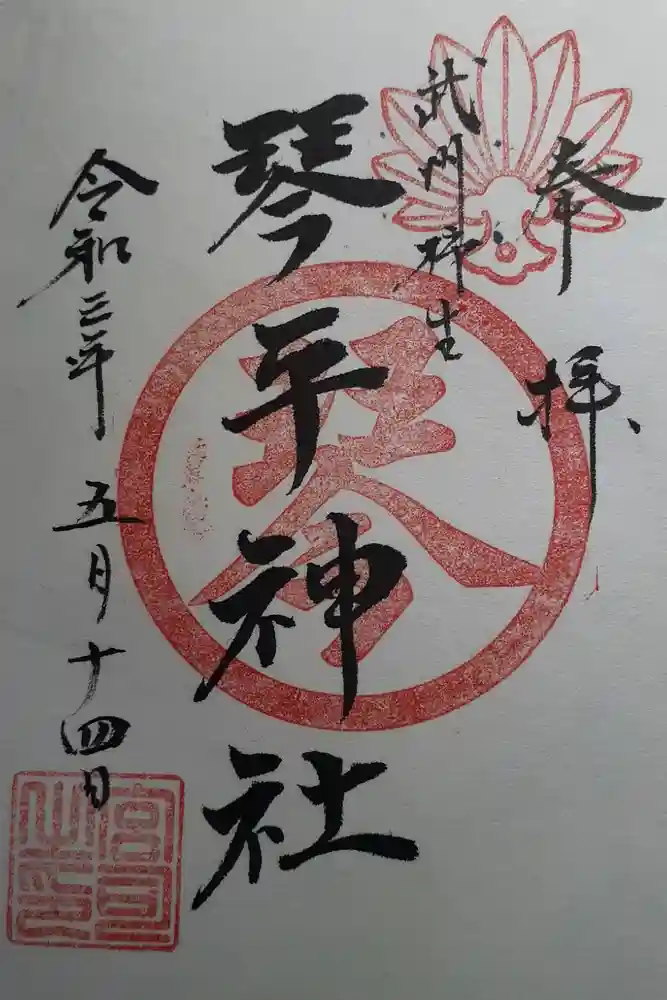 奉拝
武州柿生
琴平神社
令和三年五月十四日
琴
宮司
之印